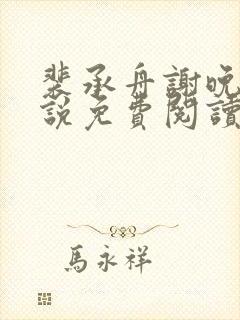 裴承舟謝晚
說免費閱讀
馬永祥